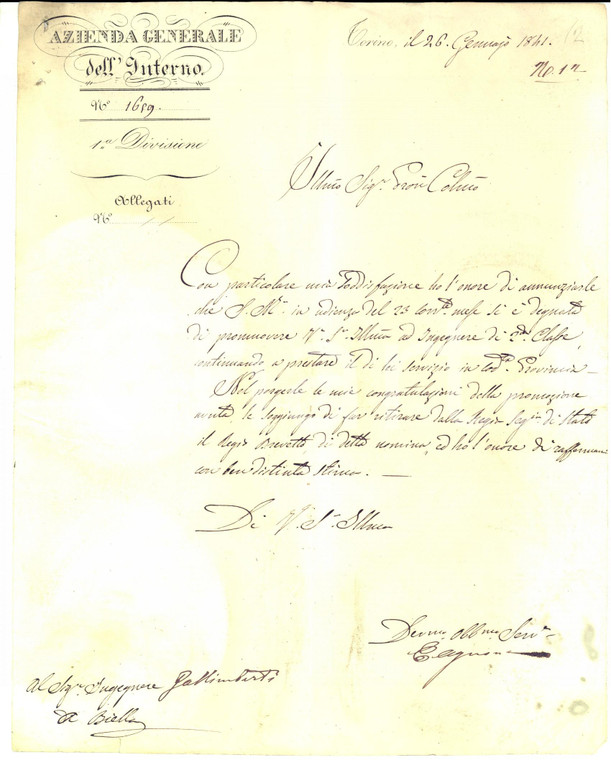 AZIENDA GENERALE
dell'Interno.
Nº 1659.
1.a Divisione
Allegati
Nº
Torino, il 26. Gennajo 1841.
12
No. 12
Illmo Sigr. Pron Colmo
Con particolare mia soddisfazione ho l'onore di annunziarle
che S. M. in udienza del 23 corrte mese si è degnata
di promuovere V. S. Illma ad Ingegnere di 2.da Classe,
continuando a prestare il di lei servizio in codta Provincia.
Nel porgerle le mie congratulazioni della promozione
avuta le soggiungo di far ritirare dalla Regia Segria di Stato
il Regio Brevetto di detta nomina, ed ho l'onore di raffermarmi
con ben distinta stima. —
Di V. S. Illma
Devmo Obbmo Servre
Al Sigr Ingegnere Gallimberti
a Biella